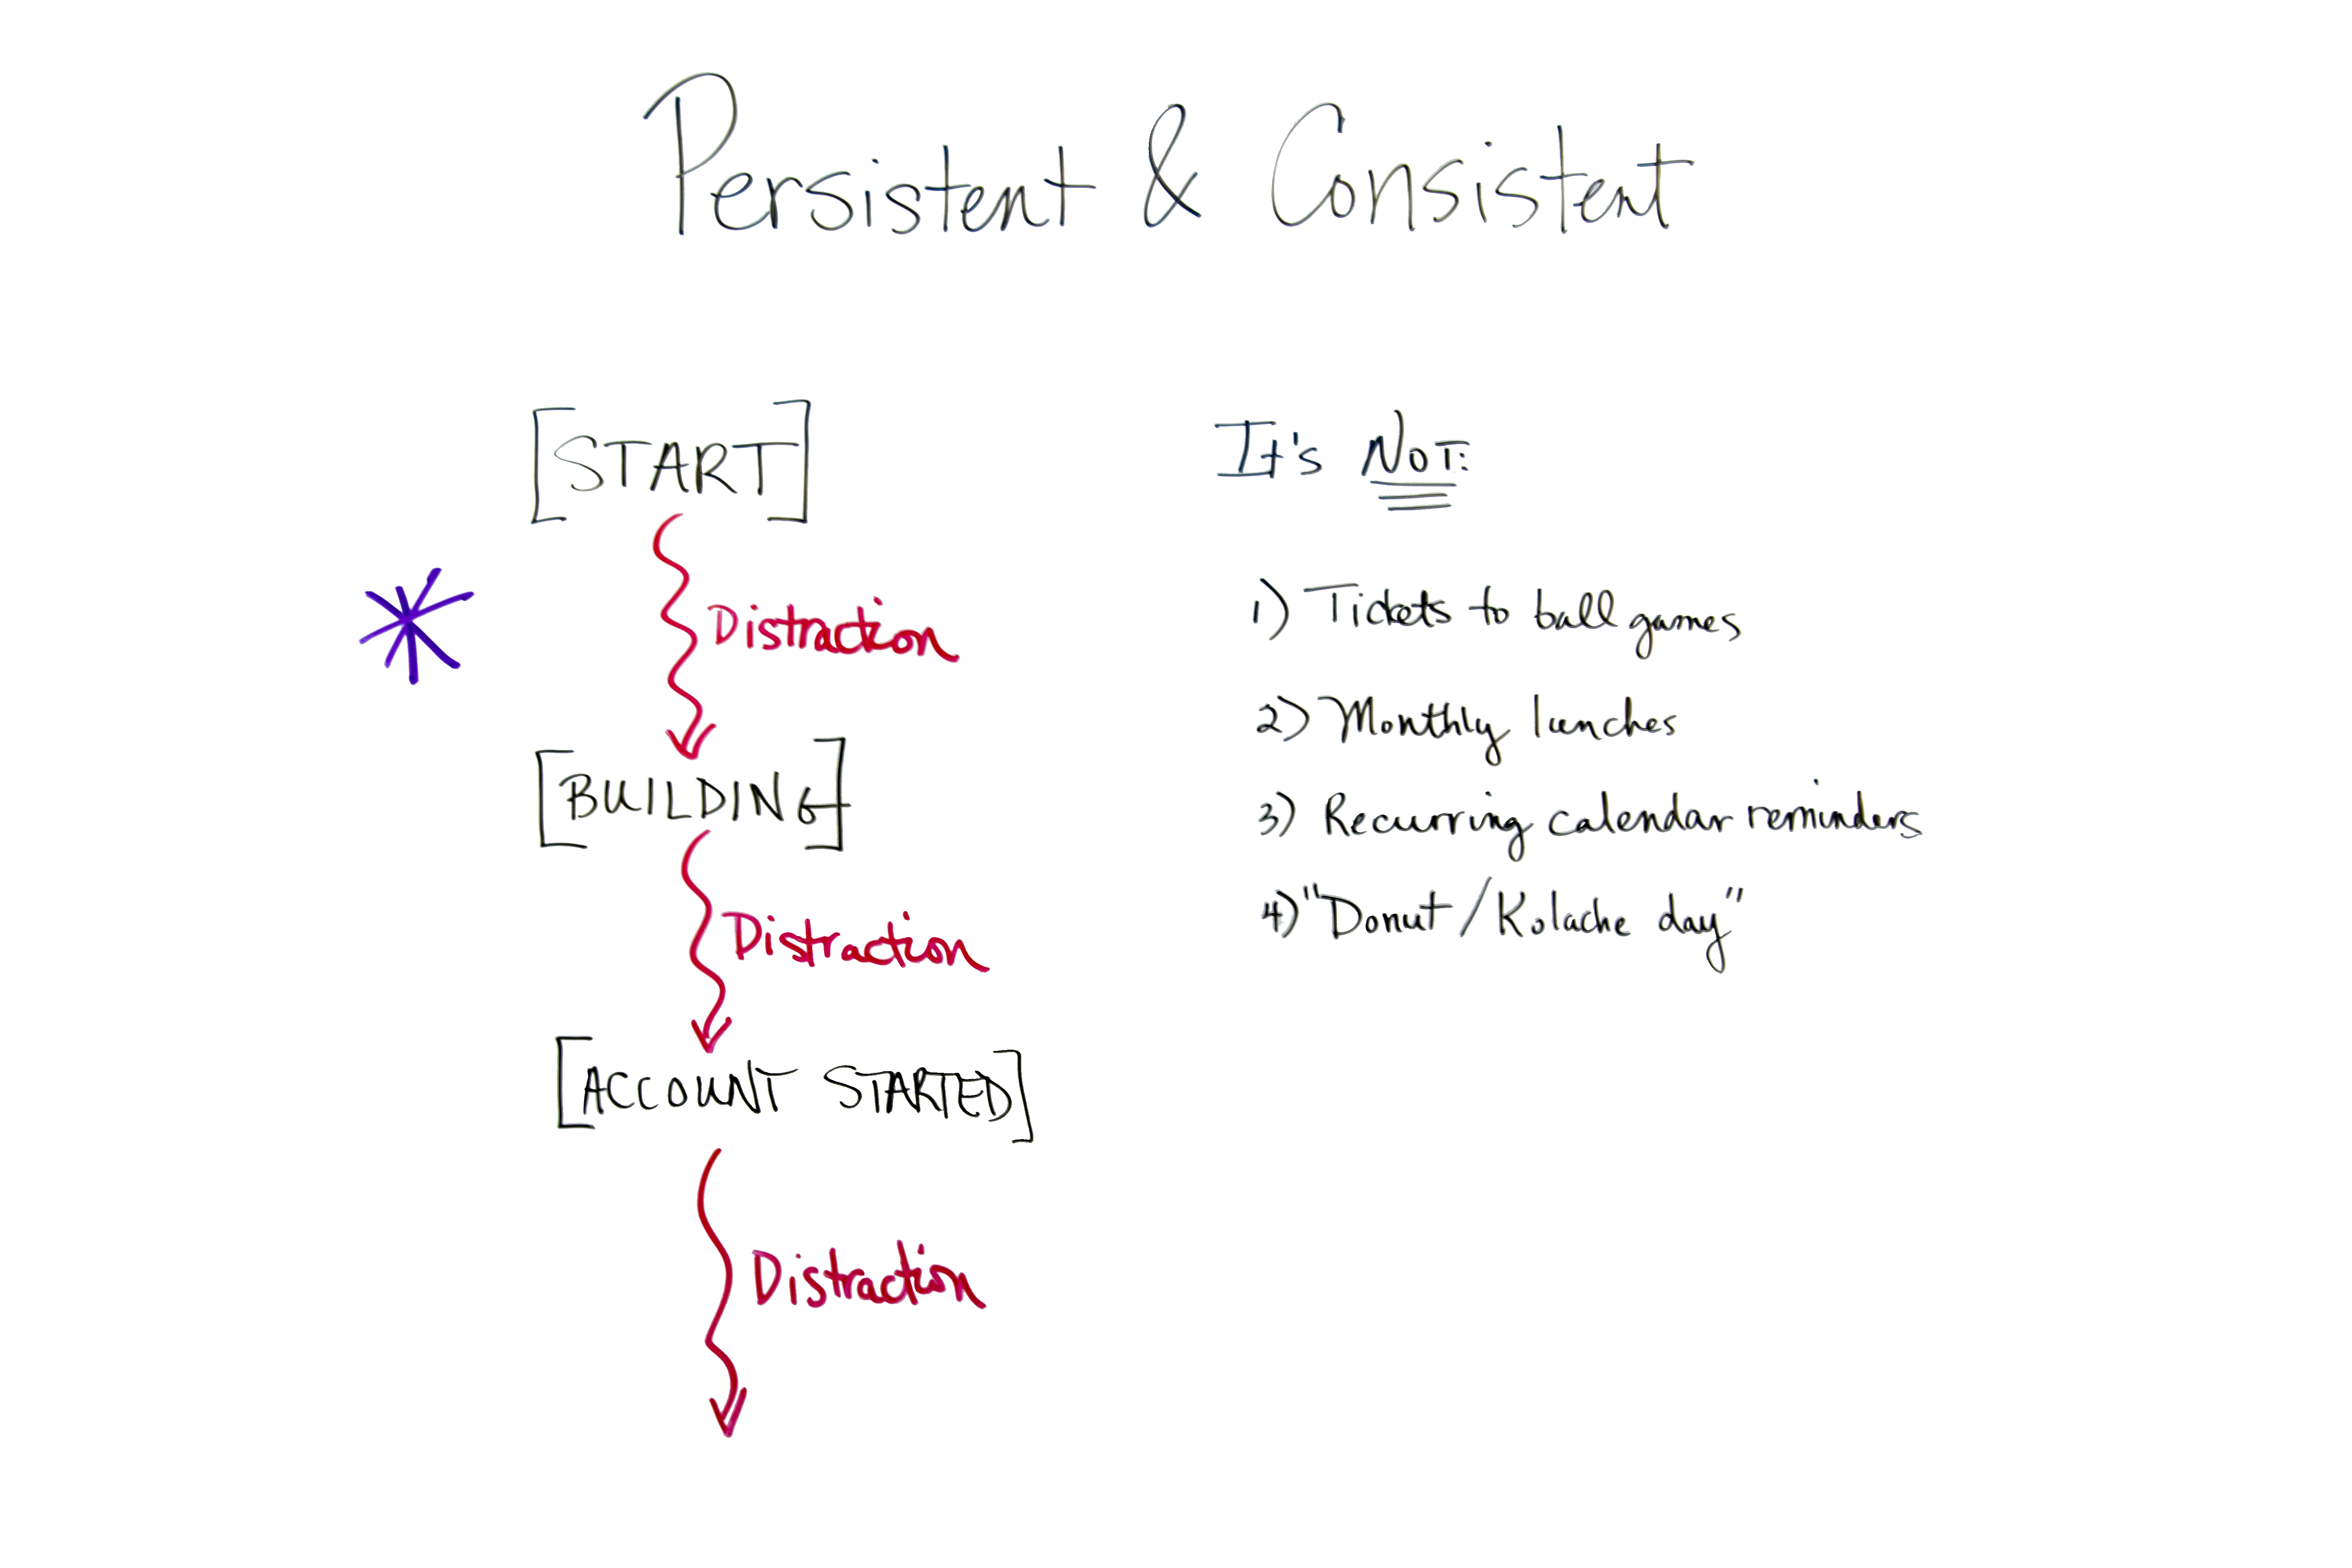 Persistent & Consistent
[START]
Distraction
[BUILDING]
Distraction
[ACCOUNT STARTED]
Distraction
It's NOT:
1) Tickets to ball games
2) Monthly lunches
3) Recurring calendar reminders
4) "Donut/Kolache day"